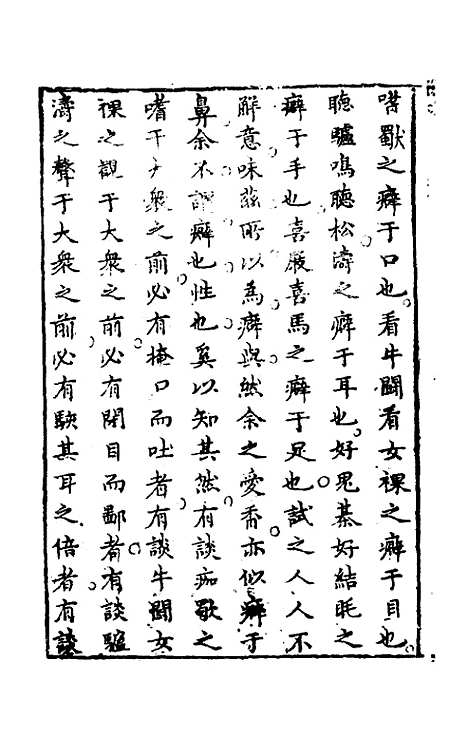 嗜歜之癖于口也看牛鬪看女裸之癖于目也
聽驢鳴聽松濤之癖于耳也好晃棊好結眊之
癖于手也喜屐喜馬之癖于足也試之人人不
解意味茲所以為癖與然余之愛香亦似癖于
鼻余不謂癖也性也奚以知其然有談痂歜之
嗜于大衆之前必有掩口而吐者有談牛鬪女
裸之觀于大衆之前必有閉目而鄙者有談驢
濤之聲于大衆之前必有駃其耳之倍者有談